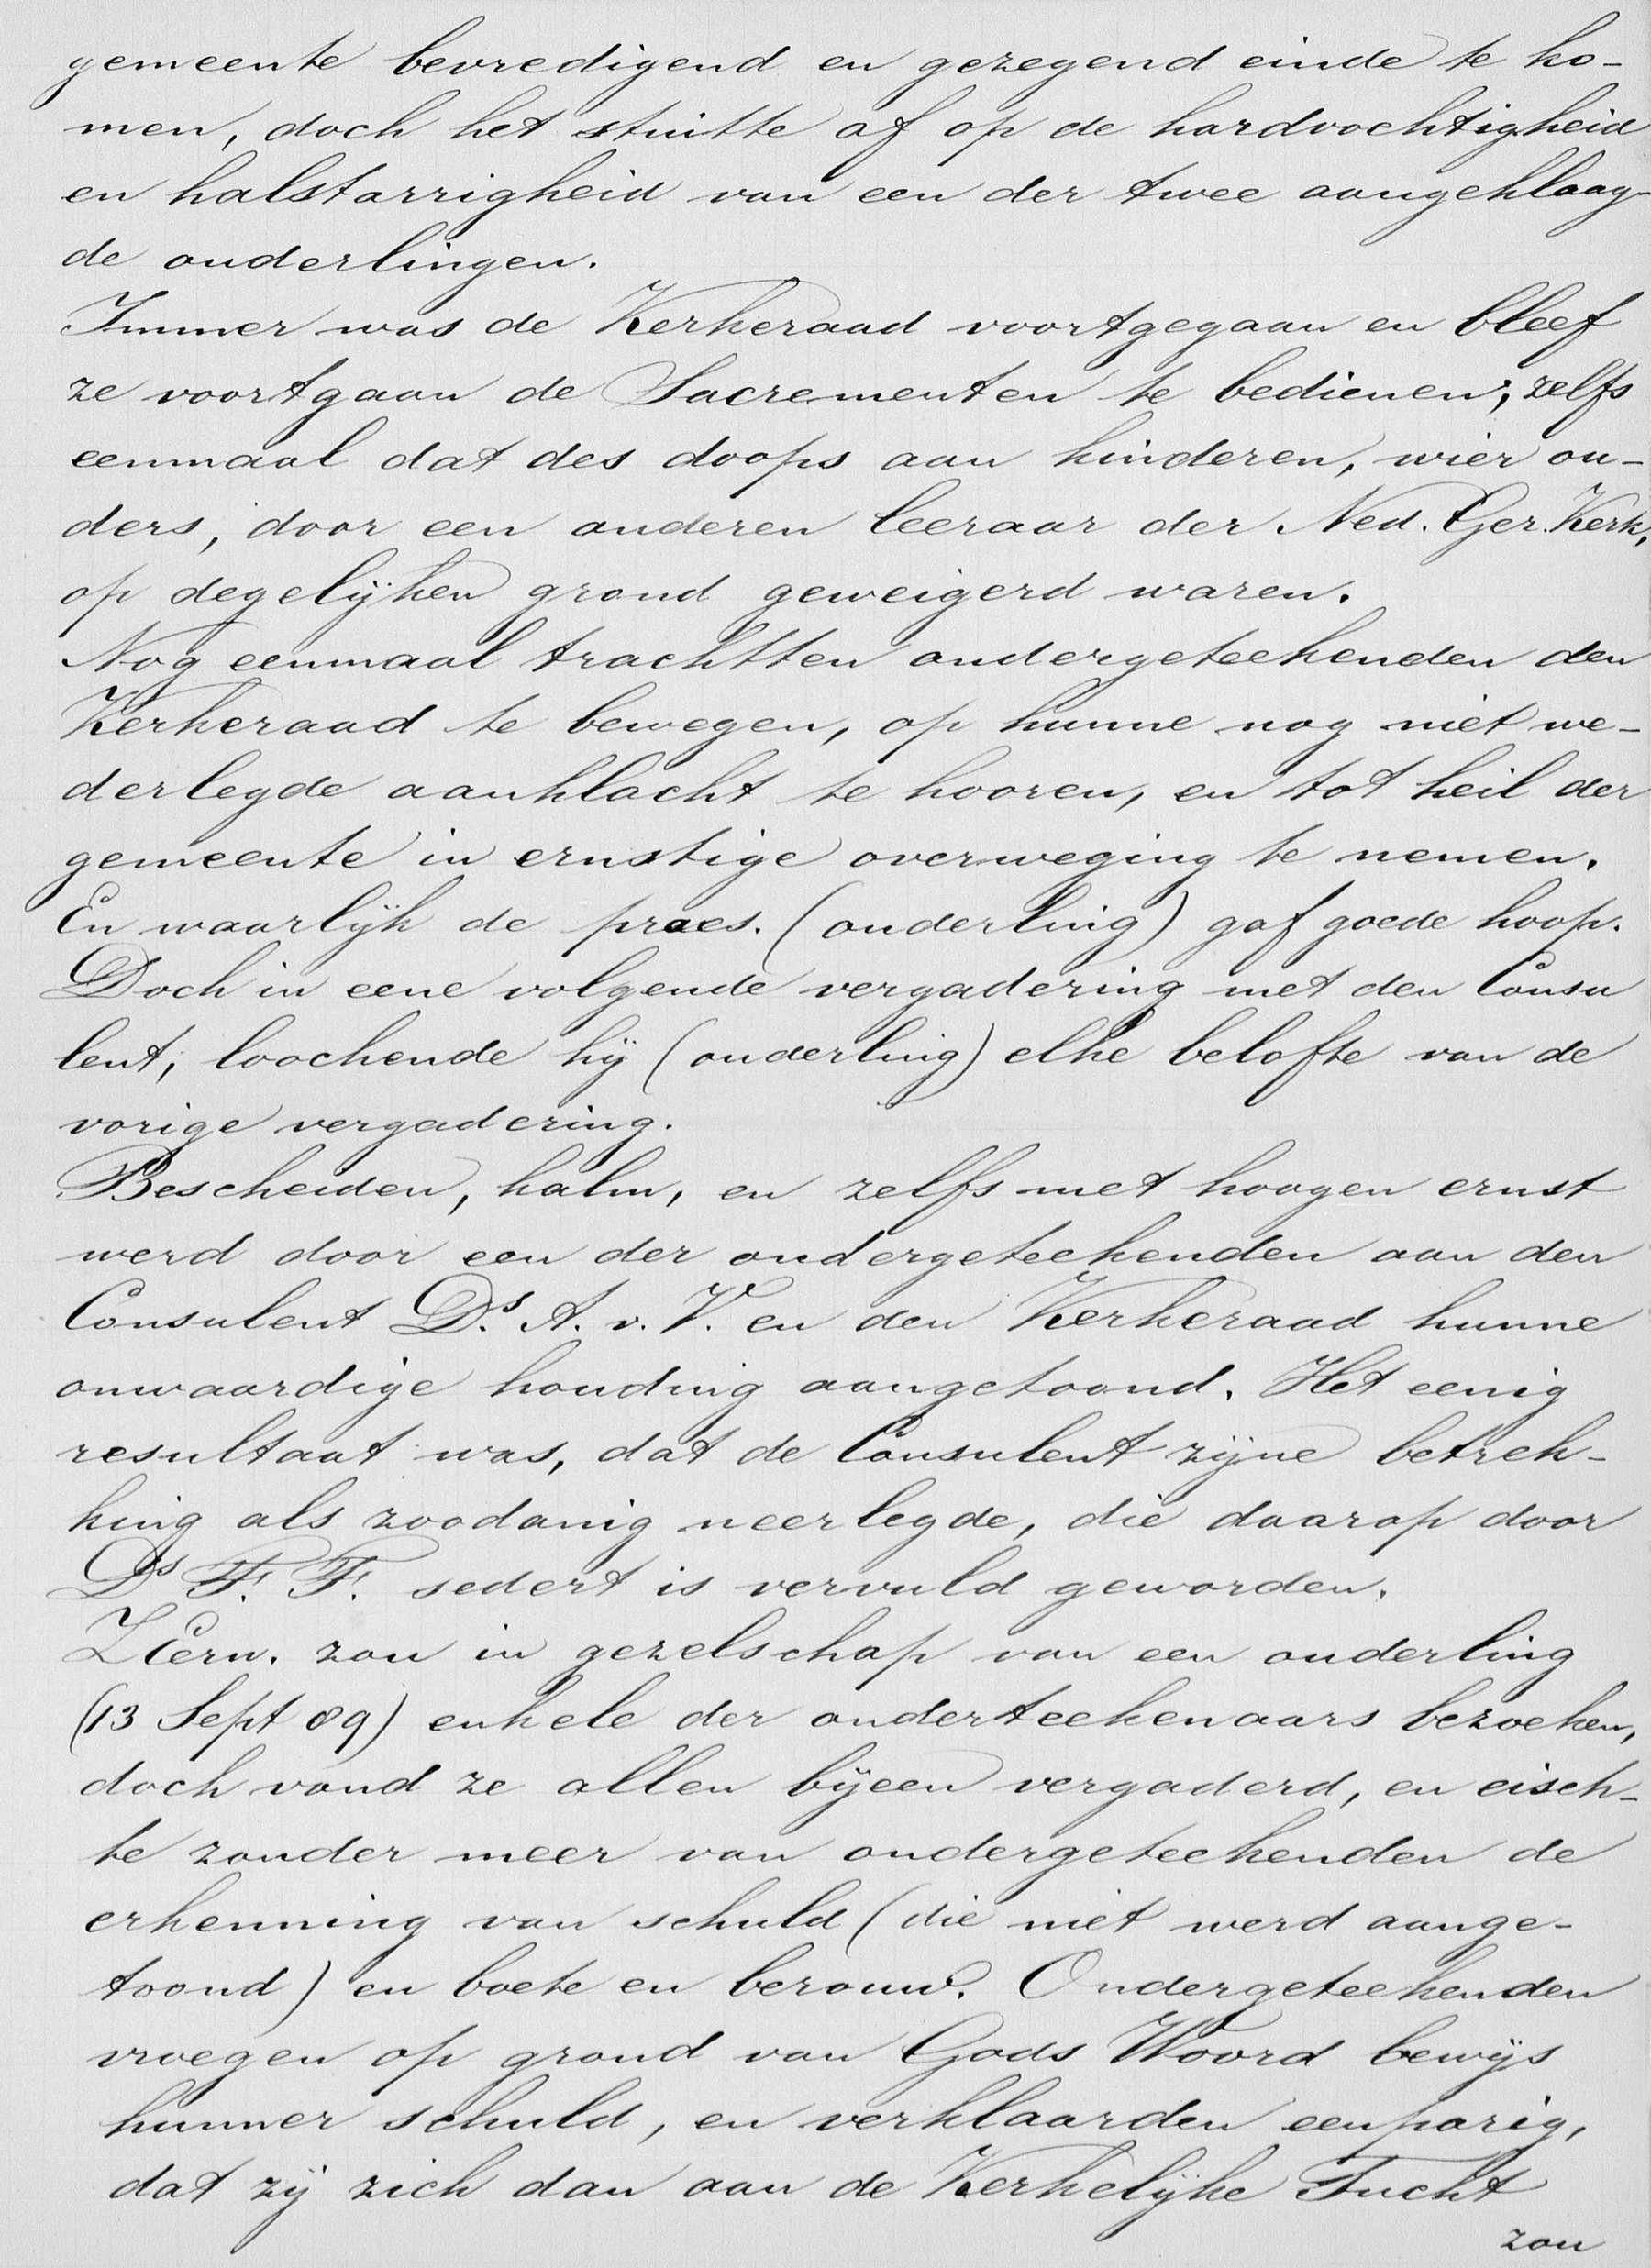 gemeente bevredigend en gezegend einde te ko-
men, doch het stuitte af op de hardvochtigheid
en halstarrigheid van een der twee aangeklaag-
de ouderlingen.
Immer was de Kerkeraad voortgegaan en bleef
ze voortgaan de Sacrementen te bedienen; zelfs
eenmaal dat des doops aan kinderen, wier ou-
ders, door een anderen leeraar der Ned. Ger. Kerk,
op degelijken grond geweigerd waren.
Nog eenmaal trachtten ondergeteekenden den
Kerkeraad te bewegen, op hunne nog niet we-
derlegde aanklacht te hooren, en tot heil der
gemeente in ernstige overweging te nemen.
En waarlijk de praes. (ouderling) gaf goede hoop.
Doch in eene volgende vergadering met den Consu
lent, loochende hij (ouderling) elke belofte van de
vorige vergadering.
Bescheiden, kalm, en zelfs met hoogen ernst
werd door een der ondergeteekenden aan den
Consulent Ds. A. v. V. en den Kerkeraad hunne
onwaardige houding aangetoond. Het eenig
resultaat was, dat de Consulent zijne betrek-
king als zoodanig neerlegde, die daarop door
Ds F. F. sedert is vervuld geworden.
ZEerw. zou in gezelschap van een ouderling
(13 Sept 89) enkele der onderteekenaars bezoeken,
doch vond ze allen bijeen vergaderd, en eisch-
te zonder meer van ondergeteekenden de
erkenning van schuld (die niet werd aange-
toond) en boete en berouw. Ondergeteekenden
vroegen op grond van Gods Woord bewijs
hunner schuld, en verklaarden eenparig,
dat zij zich dan aan de Kerkelijke Tucht
zou